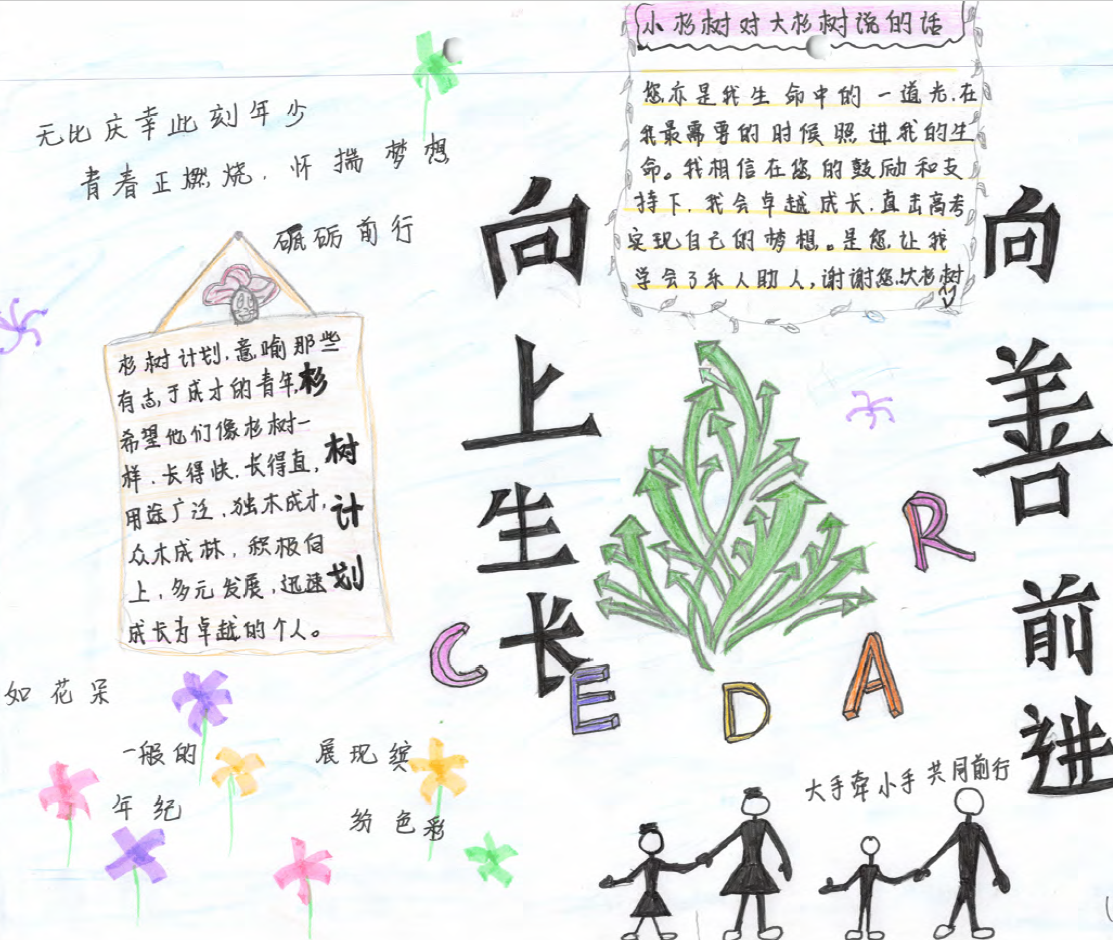 小杉树对大杉树说的话
您亦是我生命中的一道光.在
我最需要的时候照进我的生
命。我相信在您的鼓励和支
持下，我会卓越成长.直击高考
实现自己的梦想。是您让我
学会了乐人助人，谢谢您.大杉树
无比庆幸此刻年少
青春正燃烧.怀揣梦想
砥砺前行
杉树计划，意喻那些
有志于成才的青年，
希望他们像杉树一
样.长得快.长得直，
用途广泛，独木成才，
众木成林，积极向
上，多元发展，迅速
成长为卓越的个人。
杉树计划
向上生长
向善前进
CEDAR
如花呆
一般的
年纪
展现缤
纷色彩
大手牵小手共同前行